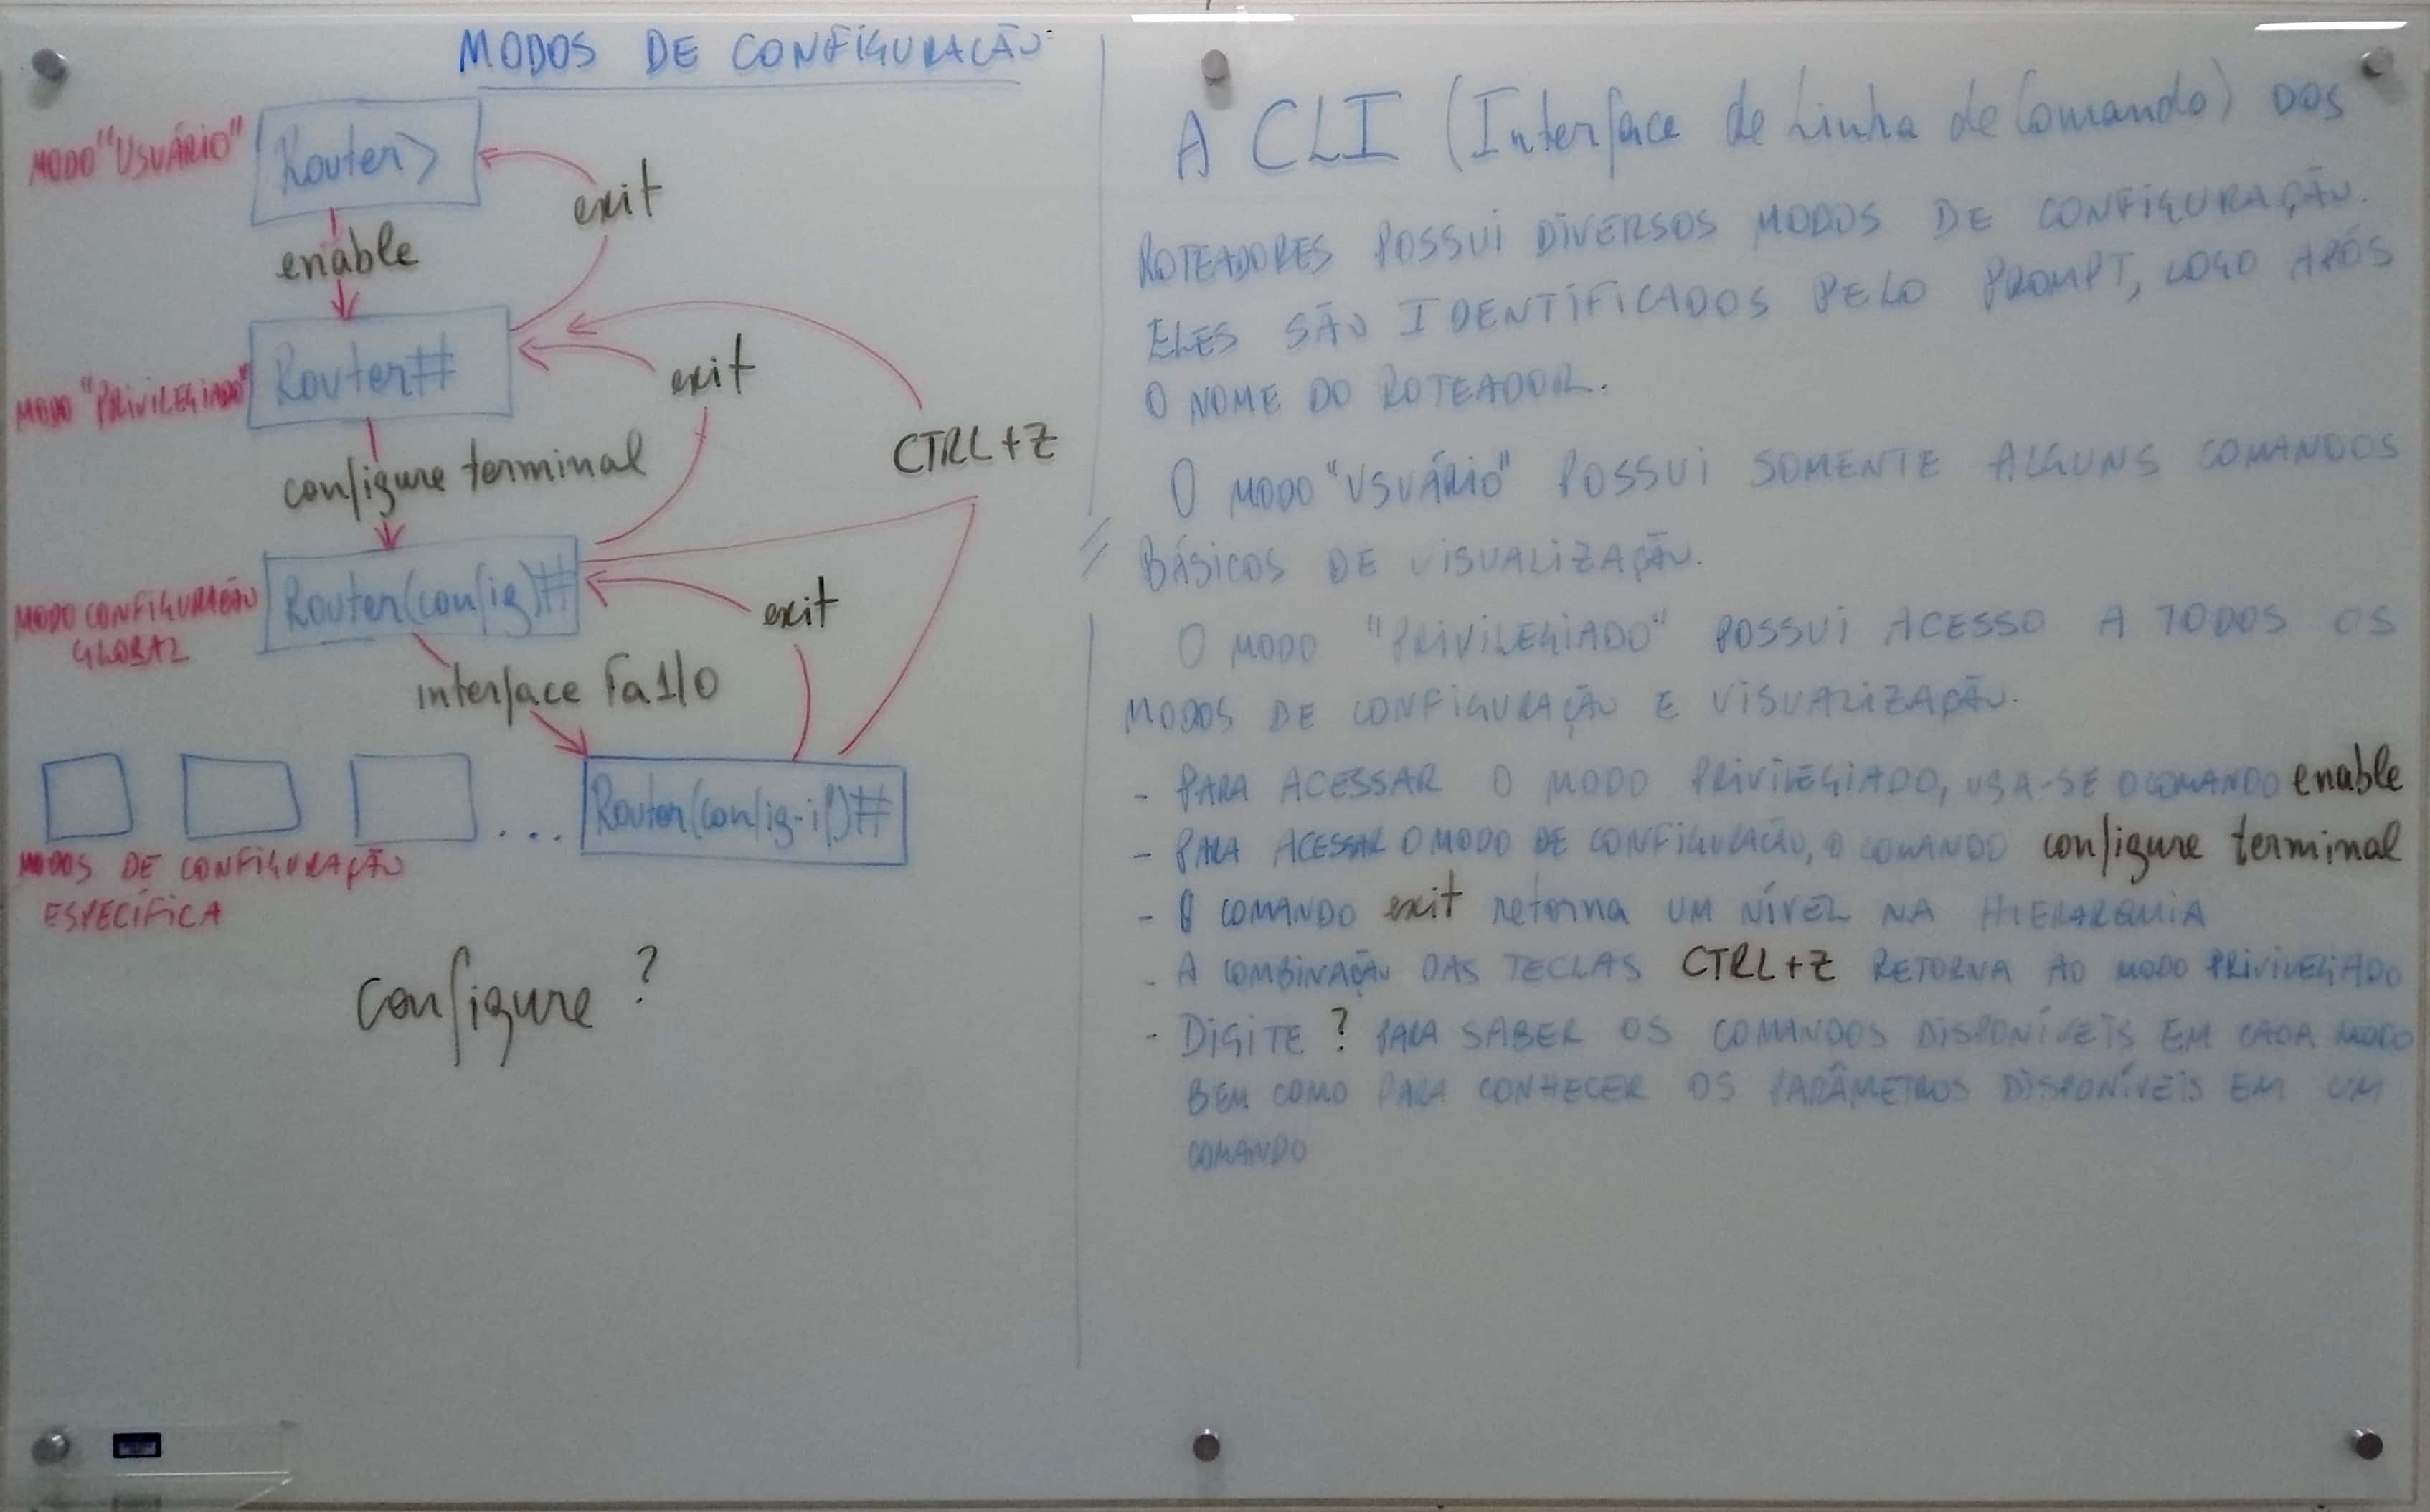 MODOS DE CONFIGURAÇÃO
MODO "USUÁRIO"
Router>
exit
enable
MODO "PRIVILEGIADO"
Router#
exit
CTRL+Z
configure terminal
MODO CONFIGURAÇÃO
GLOBAL
Router(config)#
exit
interface Fa1/0
...
Router(config-if)#
MODOS DE CONFIGURAÇÃO
ESPECÍFICA
configure ?
A CLI (Interface de Linha de Comando) DOS
ROTEADORES POSSUI DIVERSOS MODOS DE CONFIGURAÇÃO.
ELES SÃO IDENTIFICADOS PELO PROMPT, LOGO APÓS
O NOME DO ROTEADOR.
O MODO "USUÁRIO" POSSUI SOMENTE ALGUNS COMANDOS
BÁSICOS DE VISUALIZAÇÃO.
O MODO "PRIVILEGIADO" POSSUI ACESSO A TODOS OS
MODOS DE CONFIGURAÇÃO E VISUALIZAÇÃO.
- PARA ACESSAR O MODO PRIVILEGIADO, USA-SE O COMANDO enable
- PARA ACESSAR O MODO DE CONFIGURAÇÃO, O COMANDO configure terminal
- O COMANDO exit retorna UM NÍVEL NA HIERARQUIA
- A COMBINAÇÃO DAS TECLAS CTRL+Z RETORNA AO MODO PRIVILEGIADO
- DIGITE ? PARA SABER OS COMANDOS DISPONÍVEIS EM CADA MODO
BEM COMO PARA CONHECER OS PARÂMETROS DISPONÍVEIS EM UM
COMANDO